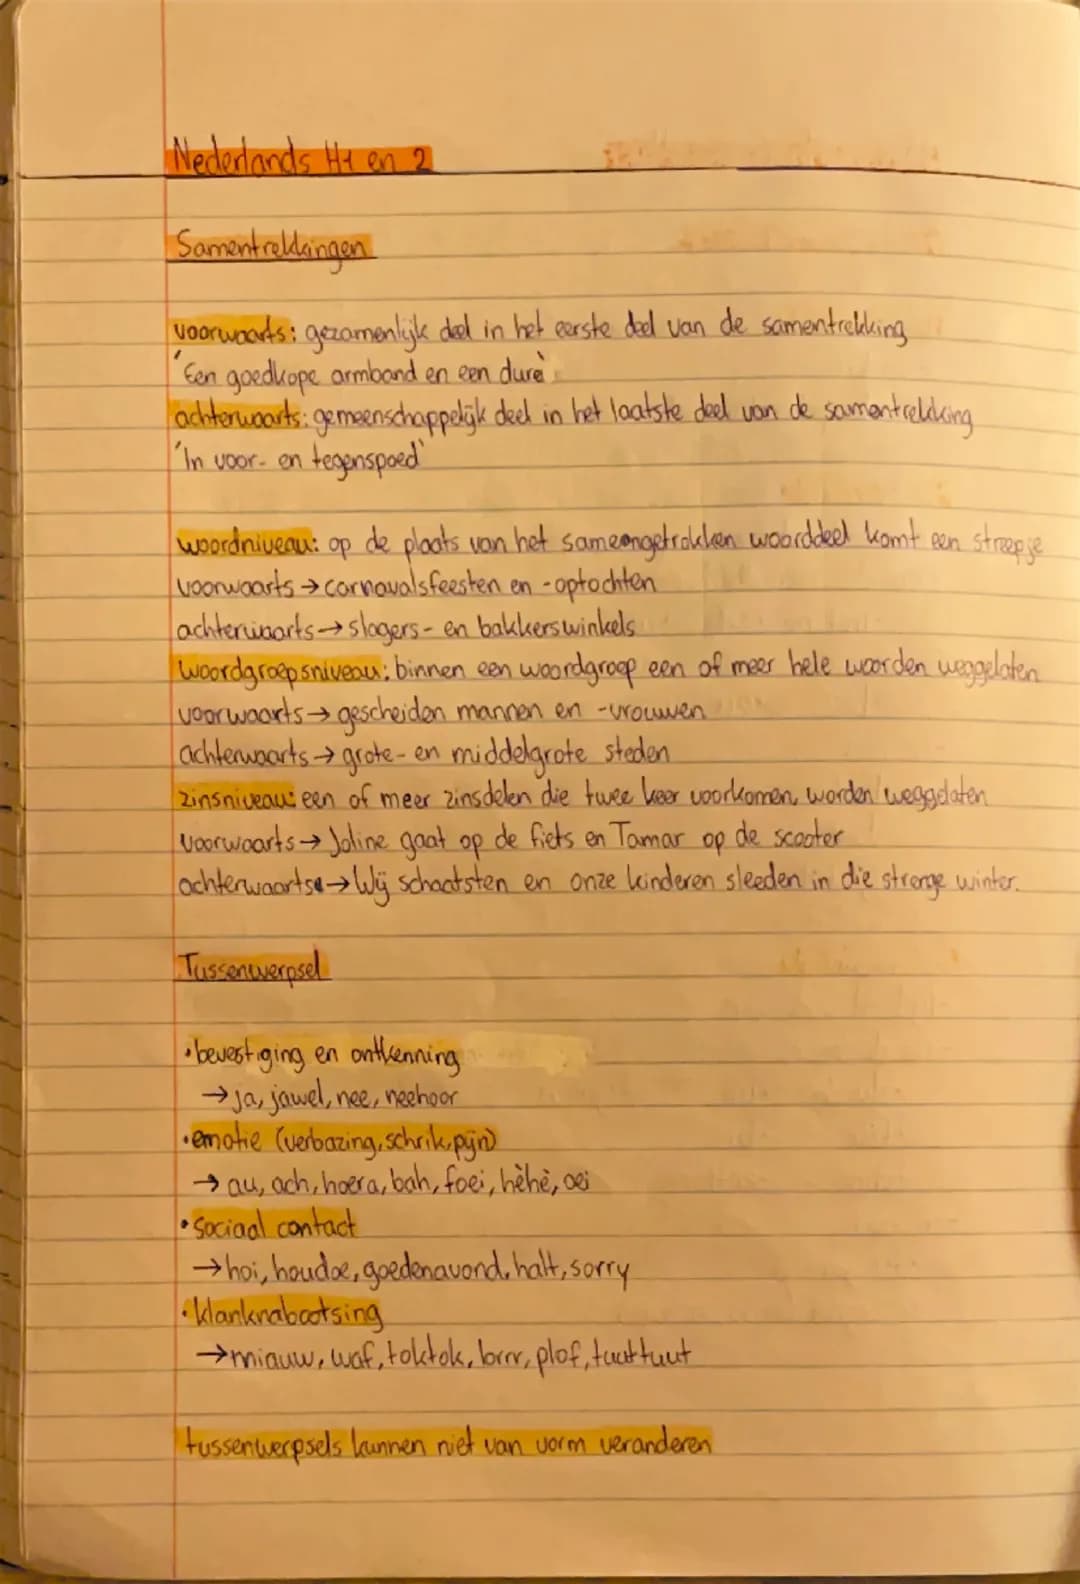 Nederlands H1 en 2
Samentrekkingen
voorwaarts: gezamenlijk deel in het eerste deel van de samentrekking
'Een goedkope armband en een dure'
achterwaarts: gemeenschappelijk deel in het laatste deel van de samentrekking
'In voor- en tegenspoed'
woordniveau: op de plaats van het samengetrokken woorddeel komt een streepje
voorwaarts → carnavalsfeesten en -optochten
achterwaarts → slagers- en bakkerswinkels
woordgroepsniveau: binnen een woordgroep een of meer hele woorden weggelaten
voorwaarts → gescheiden mannen en -vrouwen
achterwaarts → grote- en middelgrote steden
zinsniveau: een of meer zinsdelen die twee keer voorkomen, worden weggelaten
voorwaarts → Joline gaat op de fiets en Tamar op de scooter
achterwaarts → Wij schaatsten en onze kinderen sleeden in die strenge winter.
Tussenwerpsel
• bevestiging en ontkenning
→ ja, jawel, nee, neehoor
• emotie (verbazing, schrik, pijn)
→ au, ach, hoera, bah, foei, hèhè, oei
• sociaal contact
→ hoi, houdoe, goedenavond, halt, sorry
• klanknabootsing
→ miauw, waf, toktok, brrr, plof, tuuttuut
tussenwerpsels kunnen niet van vorm veranderen